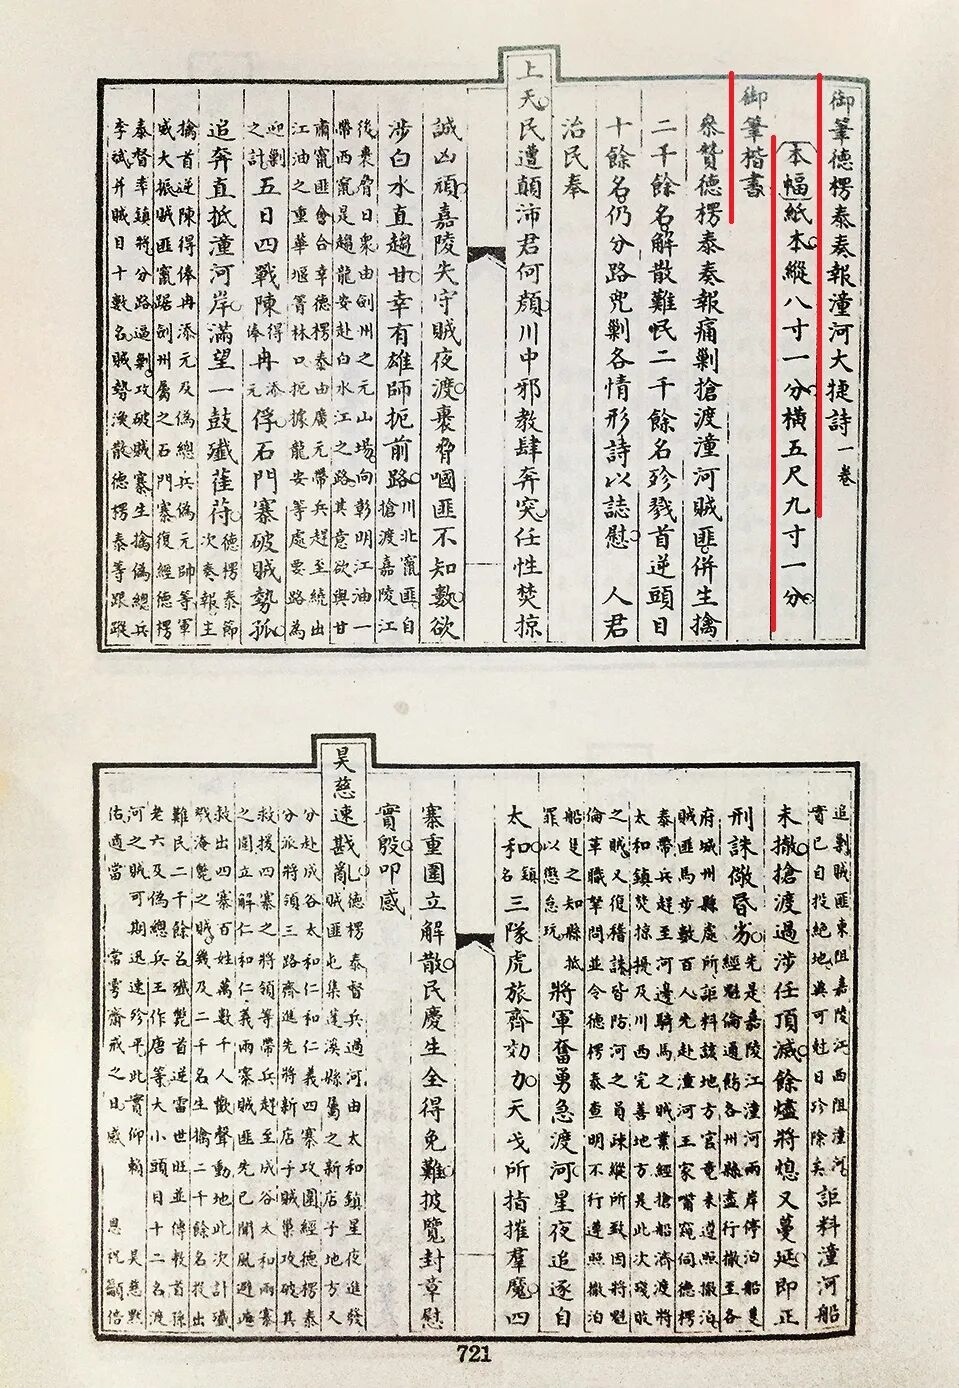 御筆德楞泰奏報潼河大捷詩一卷
本幅紙本縱八寸一分橫五尺九寸一分
御筆楷書
叅贊德楞泰奏報痛剿搶渡潼河賊匪併生擒
二千餘名解散難民二千餘名殄戮首逆頭目
十餘名仍分路兜剿各情形詩以誌慰 人君
治民奉
上天民遭顛沛君何顏川中邪教肆奔突任性焚掠
誠凶頑嘉陵失守賊夜渡裹脅嘓匪不知數欲
涉白水直趨甘幸有雄師扼前路川北竄匪自搶渡嘉陵江
後裹脅日衆由劍州之元山場向彰明江油一
帶西竄是趨龍安赴白水江之路其意欲與甘
肅竄匪會合幸德楞泰由廣元帶兵趕至繞出
江油之重華堰罯林口扼據龍安等處要路為
迎剿之計五日四戰陳得俸冉添元俘石門寨破賊勢孤
追奔直抵潼河岸滿望一鼓殲萑苻德楞泰節次奏報主
擒首逆陳得俸冉添元及偽總兵偽元帥等軍
威大振賊匪竄踞劍州屬之石門寨復經德楞
泰督率鎮將分路過剿攻破賊寨生擒偽總兵
李斌并賊目十數名賊勢渙散德楞泰等跟蹤
追剿賊匪東阻嘉陵江西阻潼河實已自投絕地兵可尅日殄除矣詎料潼河船
未撤搶渡過涉任頂滅餘燼將熄又蔓延即正
刑誅儆昏劣先是嘉陵江潼河兩岸停泊船隻經魁倫通飭各州縣盡行撤至各
府城州縣處所詎料該地方官竟未遵照撤泊
賊匪馬步數百人先赴潼河王家嘴窺伺德楞
泰帶兵趕至河邊騎馬之賊業經搶船濟渡將
太和鎮焚掠擾及川西完善地方是此次殘敗
之賊又復稽誅皆防河之員疎縱所致因將魁
倫革職拏問並令德楞泰查明不行遵照撤泊
船隻之知縣抵罪以懲怠玩將軍奮勇急渡河星夜追逐自
太和鎮名三隊虎旅齊効力天戈所指摧羣魔四
寨重圍立解散民慶生全得免難披覽封章慰
實殷叩感
昊慈速戡亂德楞泰督兵過河由太和鎮星夜進發賊匪屯集蓬溪縣屬之新店子地方又
分赴成谷太和仁和仁義四寨攻圍經德楞泰
分派將領三路齊進先將新店子賊巢攻破其
救援四寨之將領等帶兵趕至成谷太和兩寨
之圍立解仁和仁義兩寨賊匪先已聞風避逃
救出四寨百姓萬數千人歡聲動地此次計殲
戮淹斃之賊幾及二千名生擒二千餘名投出
難民二千餘名殲斃首逆雷世旺並傳教首孫
老六及偽總兵王作唐等大小頭目十二名渡
河之賊可期迅速殄平此實仰賴 昊慈默
佑適當 常雩齋戒之日感 恩祝籲倍
721